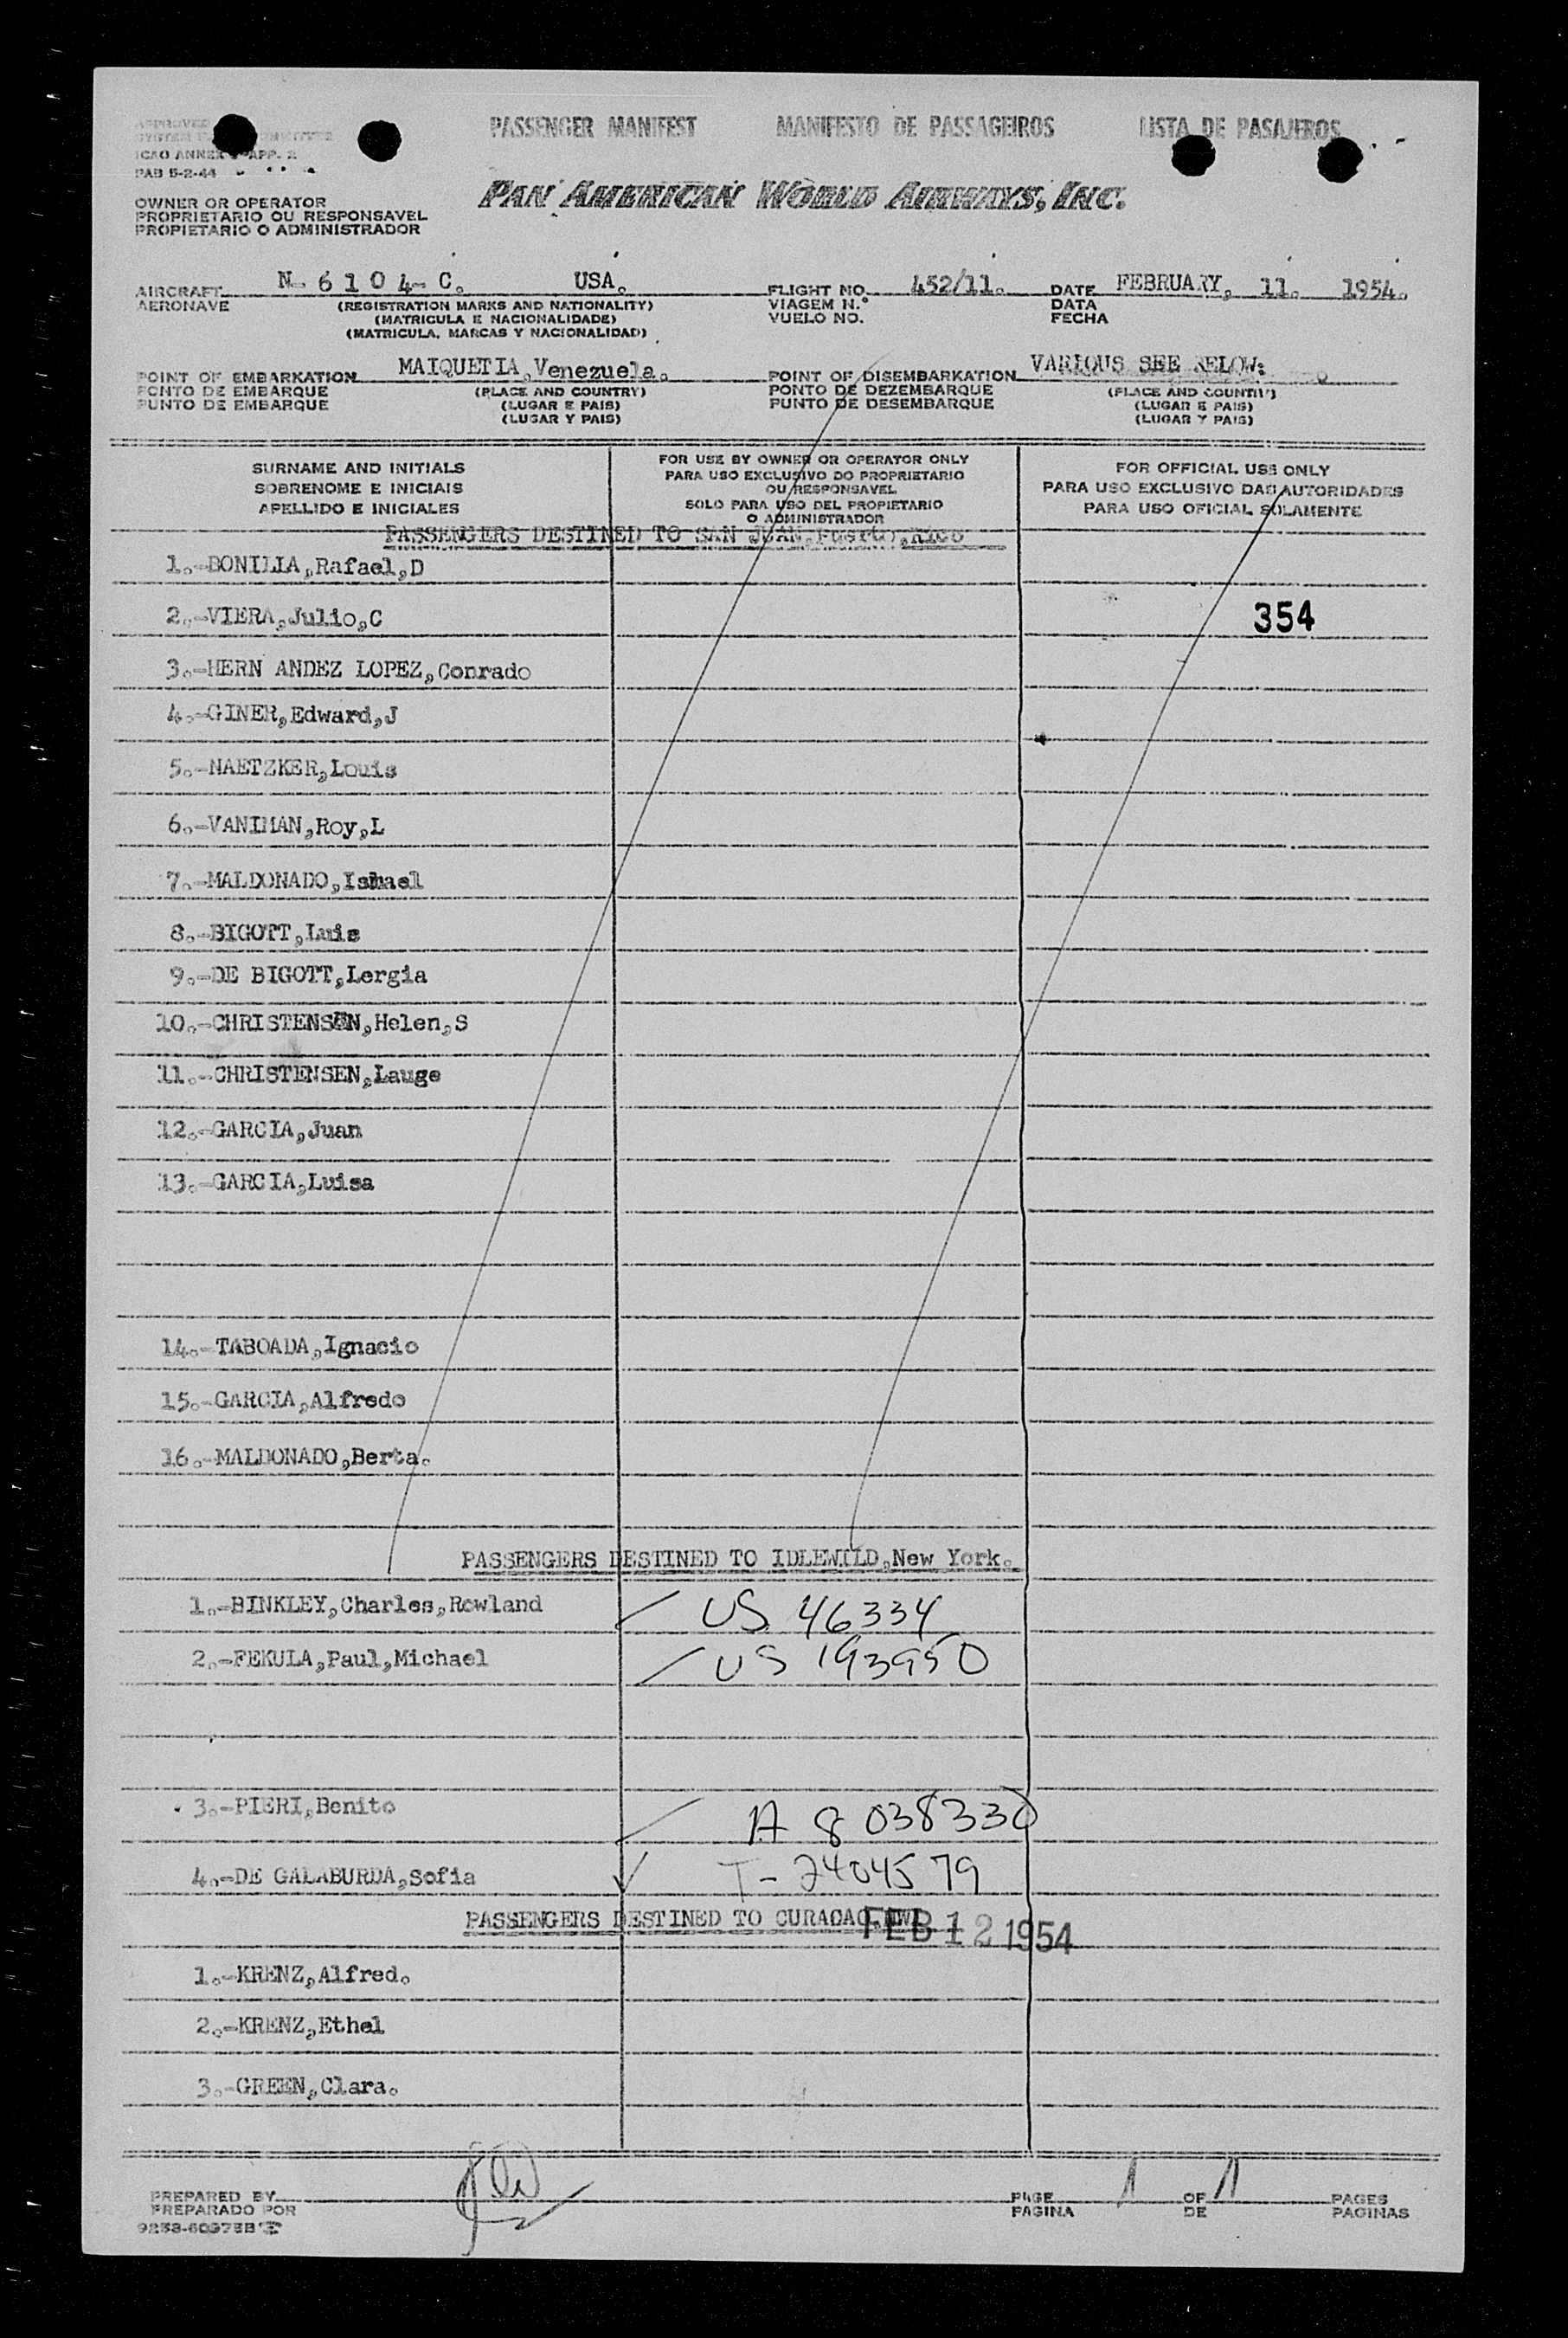 PASSENGER MANIFEST MANIFESTO DE PASSAGEIROS LISTA DE PASAJEROS
APPROVED
ICAO ANNEX 9 APP. 2
PAB 5-2-44
PAN AMERICAN WORLD AIRWAYS, INC.
OWNER OR OPERATOR
PROPRIETARIO OU RESPONSAVEL
PROPIETARIO O ADMINISTRADOR
AIRCRAFT N- 6 1 0 4- C. USA. FLIGHT NO. 452/11. DATE FEBRUARY, 11. 1954.
AERONAVE (REGISTRATION MARKS AND NATIONALITY) VIAGEM N.º DATA
(MATRICULA E NACIONALIDADE) VUELO NO. FECHA
(MATRICULA, MARCAS Y NACIONALIDAD)
POINT OF EMBARKATION MAIQUETIA,Venezuela. POINT OF DISEMBARKATION VARIOUS SEE BELOW:
PONTO DE EMBARQUE (PLACE AND COUNTRY) PONTO DE DEZEMBARQUE (PLACE AND COUNTRY)
PUNTO DE EMBARQUE (LUGAR E PAIS) PUNTO DE DESEMBARQUE (LUGAR E PAIS)
(LUGAR Y PAIS) (LUGAR Y PAIS)
SURNAME AND INITIALS
SOBRENOME E INICIAIS
APELLIDO E INICIALES
FOR USE BY OWNER OR OPERATOR ONLY
PARA USO EXCLUSIVO DO PROPRIETARIO
OU RESPONSAVEL
SOLO PARA USO DEL PROPIETARIO
O ADMINISTRADOR
FOR OFFICIAL USE ONLY
PARA USO EXCLUSIVO DAS AUTORIDADES
PARA USO OFICIAL SOLAMENTE
PASSENGERS DESTINED TO SAN JUAN,Puerto,Rico
1.-BONILLA,Rafael,D
2.-VIERA,Julio,C 354
3.-HERN ANDEZ LOPEZ,Conrado
4.-GINER,Edward,J
5.-NAETZKER,Louis
6.-VANIMAN,Roy,L
7.-MALDONADO,Ismael
8.-BIGOTT,Luis
9.-DE BIGOTT,Lergia
10.-CHRISTENSEN,Helen,S
11.-CHRISTENSEN,Lauge
12.-GARCIA,Juan
13.-GARCIA,Luisa
14.-TABOADA,Ignacio
15.-GARCIA,Alfredo
16.-MALDONADO,Berta.
PASSENGERS DESTINED TO IDLEWILD,New York.
1.-BINKLEY,Charles,Rowland US 46334
2.-FEKULA,Paul,Michael US 193950
3.-PIERI,Benito A 8 038330
4.-DE GALABURDA,Sofia T- 2404579
PASSENGERS DESTINED TO CURACAO,NWI
FEB 12 1954
1.-KRENZ,Alfred.
2.-KRENZ,Ethel
3.-GREEN,Clara.
PREPARED BY PAGE 1 OF 1 PAGES
PREPARADO POR PAGINA DE PAGINAS